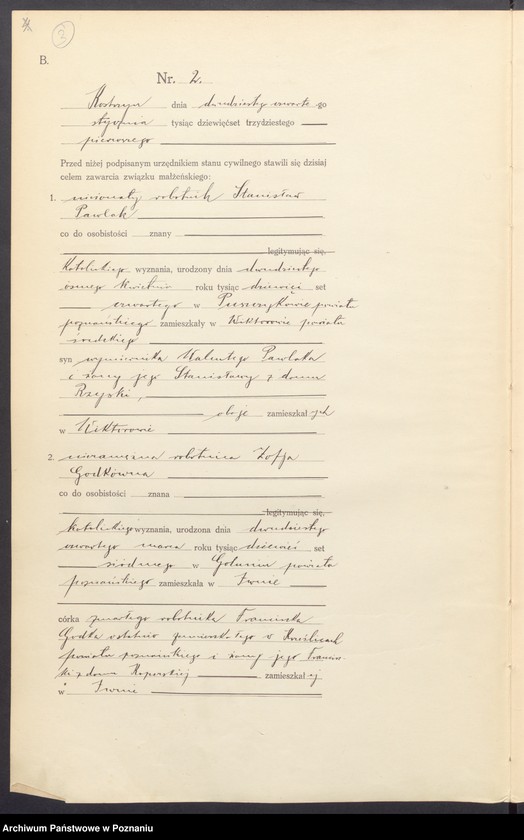 2
B.
Nr. 2.
Kostrzyn dnia dwudziestego czwarte go
stycznia tysiąc dziewięćset trzydziestego
pierwszego
Przed niżej podpisanym urzędnikiem stanu cywilnego stawili się dzisiaj
celem zawarcia związku małżeńskiego:
1. nieżonaty robotnik Stanisław
Pawlak
co do osobistości znany
legitymując się,
katolickiego wyznania, urodzony dnia dwudziestego
ósmego kwietnia roku tysiąc dziewięć set
czwartego w powiatu
poznańskiego zamieszkały w Wiktorowie powiatu
średzkiego
syn wymiernika Walentego Pawlaka
i żony jego Stanisławy z domu
oboje zamieszkał ych
w Wiktorowie
2. niezamężna robotnica Zofja
Godkówna
co do osobistości znana
legitymując się,
katolickiego wyznania, urodzona dnia dwudziestego
czwartego marca roku tysiąc dziewięć set
siódmego w powiatu
poznańskiego zamieszkała w Iwnie
córka zmarłego robotnika Franciszka
Godka ostatnio zamieszkałego w
powiatu poznańskiego i żony jego Francisz
ki z domu zamieszkał ej
w Iwnie
Archiwum Państwowe w Poznaniu